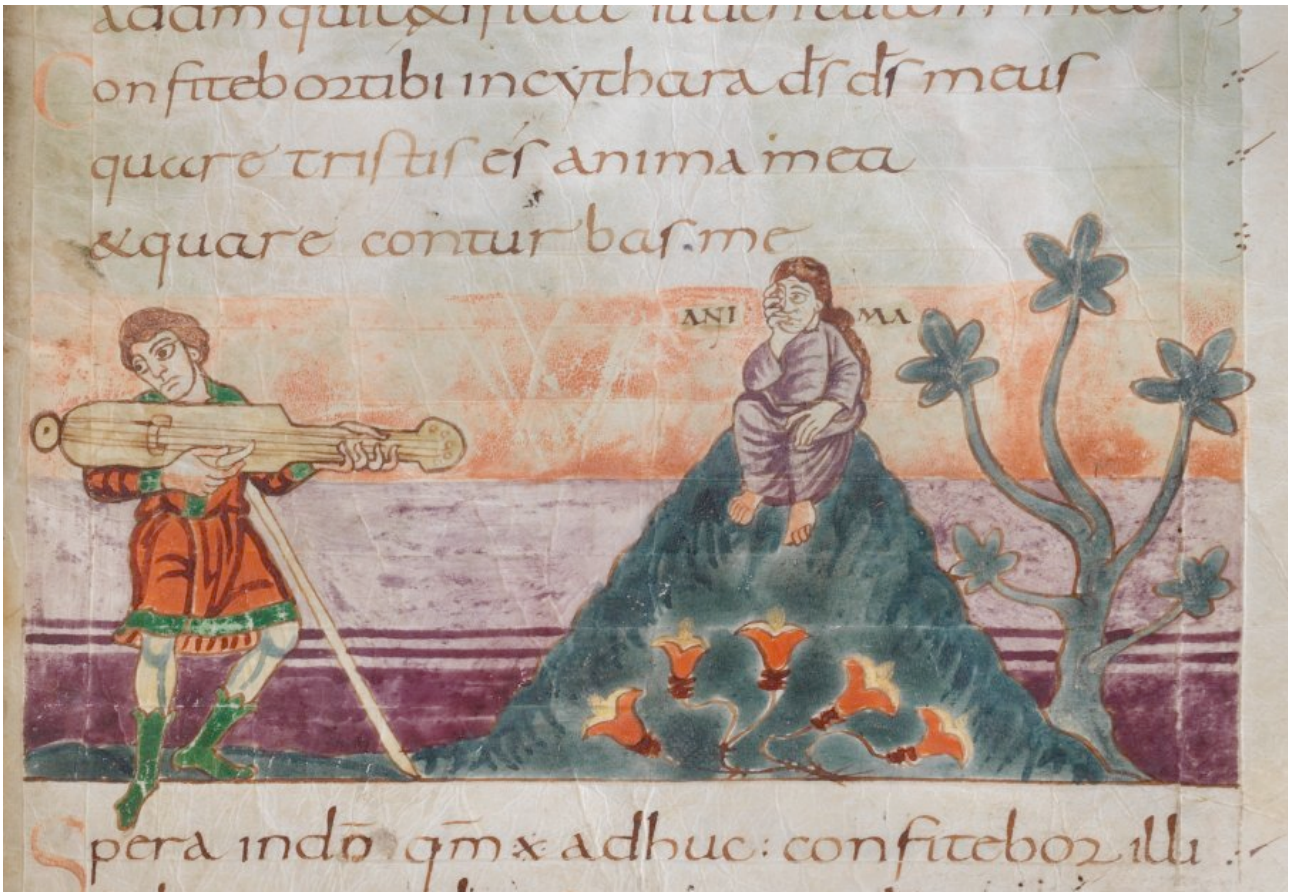 Confitebor tibi in cythara ds ds meus
quare tristis es anima mea
& quare conturbas me
ANI MA
Spera in dno qm adhuc: confitebor illi